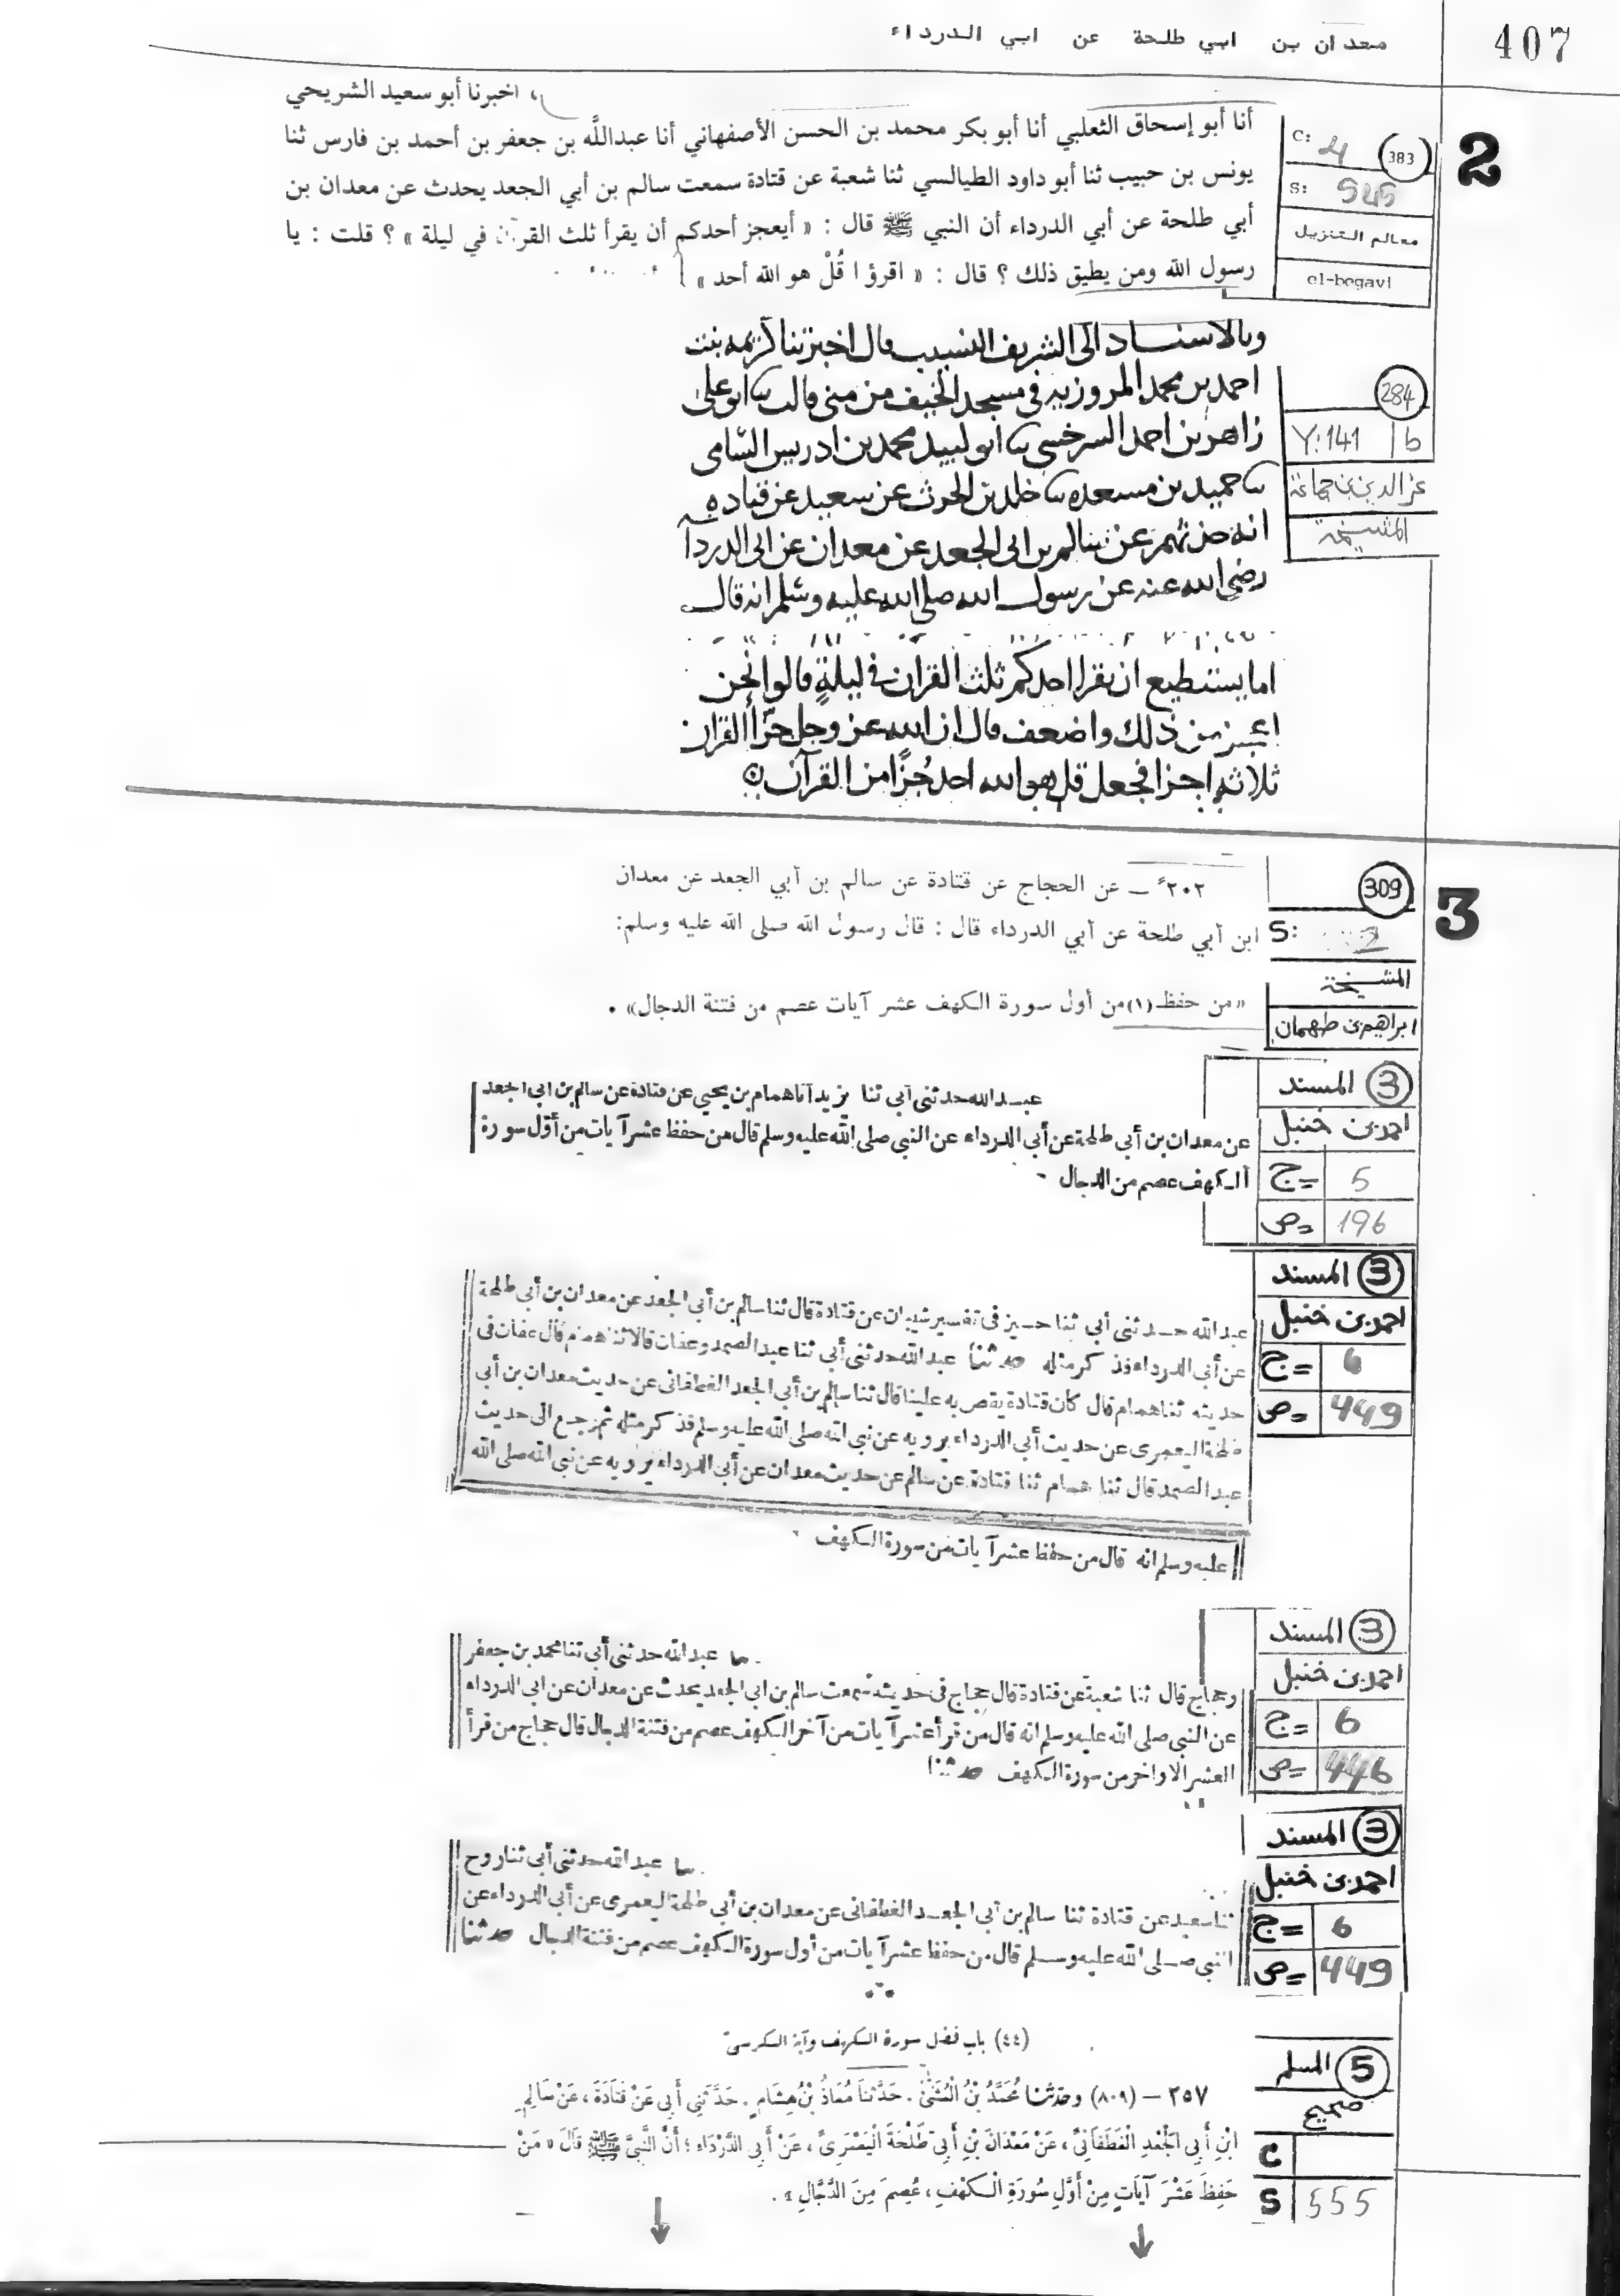 معدان بن ابي طلحة عن ابي الدرداء
407
2
383
C: 4
S: 545
معالم التنزيل
el-begavi
، اخبرنا أبو سعيد الشريحي
أنا أبو إسحاق الثعلبي أنا أبو بكر محمد بن الحسن الأصفهاني أنا عبدالله بن جعفر بن أحمد بن فارس ثنا
يونس بن حبيب ثنا أبو داود الطيالسي ثنا شعبة عن قتادة سمعت سالم بن أبي الجعد يحدث عن معدان بن
أبي طلحة عن أبي الدرداء أن النبي ﷺ قال : « أيعجز أحدكم أن يقرأ ثلث القرآن في ليلة » ؟ قلت : يا
رسول الله ومن يطيق ذلك ؟ قال : « اقرؤا قُلْ هو الله أحد »
284
Y: 141 b
عز الدين بن جماعة
المشيخة
وبالاسناد الى الشريف النسيب قال اخبرتنا كريمه بنت
احمد بن محمد المروزيه فى مسجد الخيف من منى قالت ثنا ابو على
زاهر بن احمد السرخسى ثنا ابو لبيد محمد بن ادريس الشامى
ثنا حميد بن مسعده ثنا خلد بن الحرث عن سعيد عن قتاده
انه حدثهم عن سالم بن ابى الجعد عن معدان عن ابى الدردآ
رضى الله عنه عن رسول الله صلى الله عليه وسلم انه قال
اما يستطيع ان يقرا احدكم ثلث القران فى ليلةٍ قالوا نحن
اعجز من ذلك واضعف قال ان الله عز وجل جزّأ القران
ثلاثه اجزا فجعل قل هو الله احد جُزًا من القرآن
3
309
S:
المشيخة
ابراهيم بن طهمان
٢٠٢ – عن الحجاج عن قتادة عن سالم بن أبي الجعد عن معدان
ابن أبي طلحة عن أبي الدرداء قال : قال رسول الله صلى الله عليه وسلم:
«من حفظ (١) من أول سورة الكهف عشر آيات عصم من فتنة الدجال» .
3 المسند
احمد بن حنبل
ج= 5
ص= 196
عبد الله حدثنى أبى ثنا يزيد أنا همام بن يحيى عن قتادة عن سالم بن ابى الجعد
عن معدان بن أبى طلحة عن أبى الدرداء عن النبى صلى الله عليه وسلم قال من حفظ عشر آيات من أوّل سورة
الكهف عصم من الدجال
3 المسند
احمد بن حنبل
ج= 6
ص= 449
عبد الله حدثنى أبى ثنا حسين فى تفسير شيبان عن قتادة قال ثنا سالم بن أبى الجعد عن معدان بن أبى طلحة
عن أبى الدرداء فذ كر مثله حدثنا عبد الله حدثنى أبى ثنا عبد الصمد وعفان قالا ثنا همام قال عفان فى
حديثه ثنا همام قال كان قتادة يقص به علينا قال ثنا سالم بن أبى الجعد الغطفانى عن حديث معدان بن أبى
طلحة اليعمرى عن حديث أبى الدرداء يرويه عن نبى الله صلى الله عليه وسلم فذ كر مثله ثم رجع الى حديث
عبد الصمد قال ثنا همام ثنا قتادة عن سالم عن حديث معدان عن أبى الدرداء يرويه عن نبى الله صلى الله
عليه وسلم انه قال من حفظ عشر آيات من سورة الكهف
3 المسند
احمد بن حنبل
ج= 6
ص= 446
عبد الله حدثنى أبى ثنا محمد بن جعفر
وحجاج قال ثنا شعبة عن قتادة قال حجاج فى حديثه سمعت سالم بن ابى الجعد يحدث عن معدان عن ابى الدرداء
عن النبى صلى الله عليه وسلم انه قال من قرأ عشر آيات من آخر الكهف عصم من فتنة الدجال قال حجاج من قرأ
العشر الاواخر من سورة الكهف حدثنا
3 المسند
احمد بن حنبل
ج= 6
ص= 449
عبد الله حدثنى أبى ثنا روح
ثنا سعيد عن قتادة ثنا سالم بن أبى الجعد الغطفانى عن معدان بن أبى طلحة اليعمرى عن أبى الدرداء عن
النبى صلى الله عليه وسلم قال من حفظ عشر آيات من أول سورة الكهف عصم من فتنة الدجال حدثنا
5 المسلم
صحيح
C
S 555
(٤٤) باب فضل سورة الكهف وآية الكرسىّ
٢٥٧ – (٨٠٩) وحَدَّثَنَا مُحَمَّدُ بْنُ الْمُثَنَّىٰ . حَدَّثَنَا مُعَاذُ بْنُ هِشَامٍ . حَدَّثَنِي أَبِي عَنْ قَتَادَةَ ، عَنْ سَالِمِ
ابْنِ أَبِي الْجَعْدِ الْغَطَفَانِيِّ ، عَنْ مَعْدَانَ بْنِ أَبِي طَلْحَةَ الْيَعْمَرِيِّ ، عَنْ أَبِي الدَّرْدَاءِ ؛ أَنَّ النَّبِيَّ ﷺ قَالَ « مَنْ
حَفِظَ عَشْرَ آيَاتٍ مِنْ أَوَّلِ سُورَةِ الْكَهْفِ ، عُصِمَ مِنَ الدَّجَّالِ » .